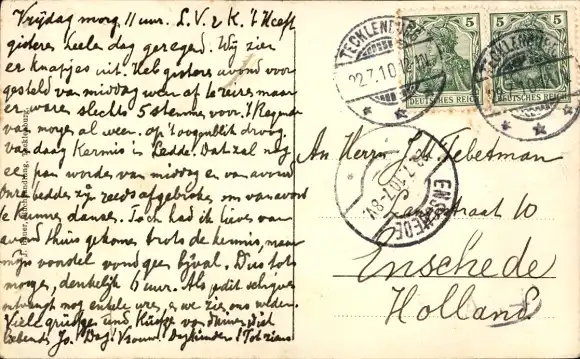 Vrijdag morg. 11 uur. L. V. & K. 't Heeft
gisteren heele dag geregend. Wij zien
er knapjes uit. Heb gisteren avond voor
gesteld van middag weer af te reizen maar
er waren slechts 5 stemmen voor. 't Regende
van morgen al weer. op 't oogenblik droog.
Vandaag Kermis in Ledde. Dat zal nog
een pan worden van middag en van avond
Onze bedden zijn reeds afgebroken om van avond
te kunnen dansen. Toch had ik liever van
avond thuis gekomen trots de kermis, maar
mijn voorstel vond geen bijval. Dus tot
morgen, denkelijk 6 uur. Als jullie dit schrijven
ontvangt nog enkele uren, en we zien ons weder.
Viele Grüsse und Küsse von
Jo. Dag! Vrouw! Dag kinder! Tot ziens
TECKLENBURG
22.7.10.12-1N.
5 5
DEUTSCHES REICH
5 5
DEUTSCHES REICH
TECKLENBURG
ENSCHEDE
An Herrn J. H. Tebetman
Langestraat 10
Enschede
Holland